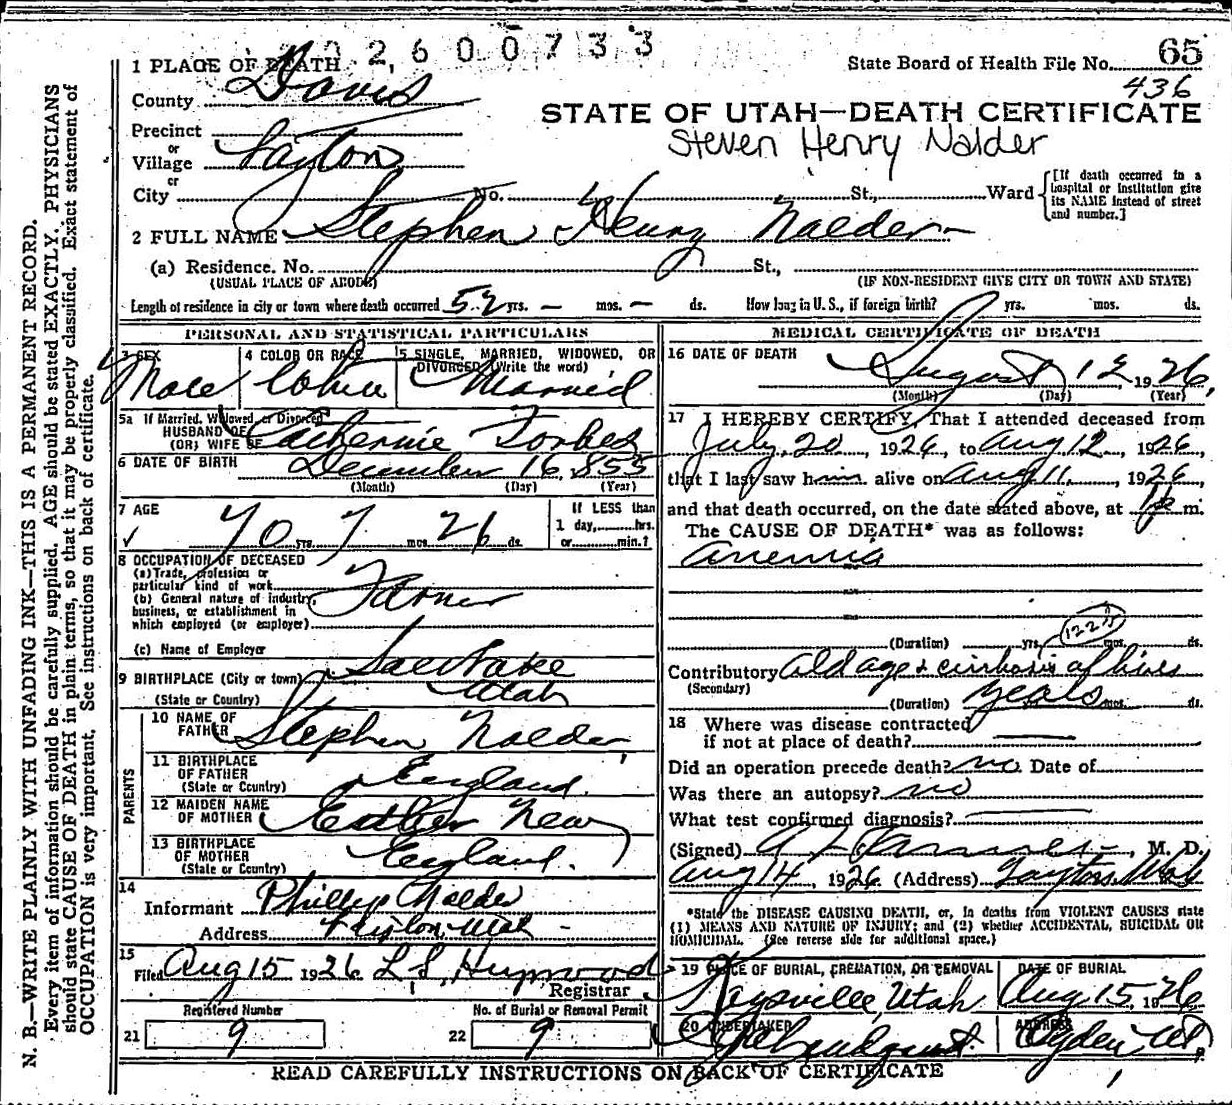 02600733
65
State Board of Health File No.
436
1 PLACE OF DEATH
County Davis
STATE OF UTAH—DEATH CERTIFICATE
Steven Henry Nalder
Precinct
or
Village Layton
or
City No. St., Ward
[If death occurred in a hospital or institution give its NAME instead of street and number.]
2 FULL NAME Stephen Henry Nalder
(a) Residence. No. St.,
(USUAL PLACE OF ABODE) (IF NON-RESIDENT GIVE CITY OR TOWN AND STATE)
Length of residence in city or town where death occurred 52 yrs. — mos. — ds. How long in U. S., if foreign birth? yrs. mos. ds.
PERSONAL AND STATISTICAL PARTICULARS
3 SEX
Male
4 COLOR OR RACE
White
5 SINGLE, MARRIED, WIDOWED, OR DIVORCED (Write the word)
Married
5a If Married, Widowed, or Divorced
HUSBAND OF
(OR) WIFE OF Catherine Forbes
6 DATE OF BIRTH December 16, 1855
(Month) (Day) (Year)
7 AGE
70 yrs. 7 mos. 26 ds.
If LESS than
1 day, hrs.
or min.?
8 OCCUPATION OF DECEASED
(a) Trade, profession or
particular kind of work
(b) General nature of industry,
business, or establishment in
which employed (or employer)
Farmer
(c) Name of Employer
9 BIRTHPLACE (City or town) Salt Lake
(State or Country) Utah
PARENTS
10 NAME OF
FATHER Stephen Nalder
11 BIRTHPLACE
OF FATHER
(State or Country) England
12 MAIDEN NAME
OF MOTHER Esther New
13 BIRTHPLACE
OF MOTHER
(State or Country) England.
14
Informant Phillip Nalder
Address Layton Utah
15
Filed Aug 15 1926 L S, Heywood
Registrar
Registered Number
21 9
No. of Burial or Removal Permit
22 9
MEDICAL CERTIFICATE OF DEATH
16 DATE OF DEATH
August 12, 1926,
(Month) (Day) (Year)
17 I HEREBY CERTIFY, That I attended deceased from
July 20, 1926, to Aug 12, 1926
that I last saw him alive on Aug 11, 1926
and that death occurred, on the date stated above, at m.
The CAUSE OF DEATH* was as follows:
Anemia
(Duration) yrs. mos. ds.
Contributory Old age + cirrhosis of liver
(Secondary)
(Duration) years mos. ds.
18 Where was disease contracted
if not at place of death?
Did an operation precede death? no Date of
Was there an autopsy? no
What test confirmed diagnosis?
(Signed) M. D.
Aug 14, 1926 (Address) Layton, Utah
*State the DISEASE CAUSING DEATH, or, in deaths from VIOLENT CAUSES state
(1) MEANS AND NATURE OF INJURY; and (2) whether ACCIDENTAL, SUICIDAL OR
HOMICIDAL. (See reverse side for additional space.)
19 PLACE OF BURIAL, CREMATION, OR REMOVAL
Kaysville, Utah
DATE OF BURIAL
Aug 15, 1926
20 UNDERTAKER
ADDRESS
Ogden, Ut.
READ CAREFULLY INSTRUCTIONS ON BACK OF CERTIFICATE
N. B.—WRITE PLAINLY WITH UNFADING INK—THIS IS A PERMANENT RECORD.
Every item of information should be carefully supplied. AGE should be stated EXACTLY. PHYSICIANS
should state CAUSE OF DEATH in plain terms, so that it may be properly classified. Exact statement of
OCCUPATION is very important. See instructions on back of certificate.